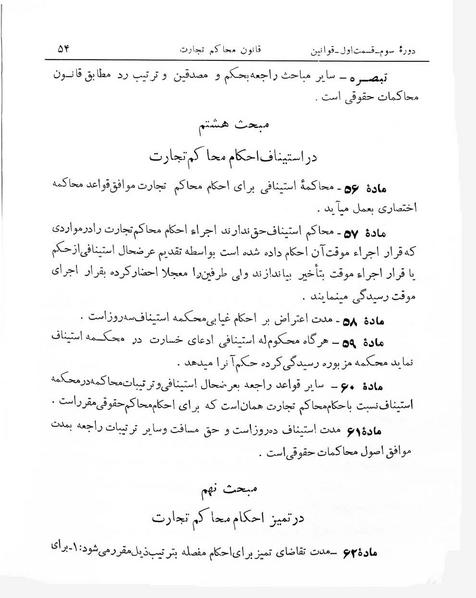 دورهٔ سوم-قسمت اول-قوانین قانون محاکم تجارت ۵۴
تبصره - سایر مباحث راجعه بحکم و مصدقین و ترتیب رد مطابق قانون
محاکمات حقوقی است .
مبحث هشتم
در استیناف احکام محاکم تجارت
مادهٔ ۵۶ - محاکمهٔ استینافی برای احکام محاکم تجارت موافق قواعد محاکمه
اختصاری بعمل میآید .
مادهٔ ۵۷ - محاکم استیناف حق ندارند اجراء احکام محاکم تجارت را در مواردی
که قرار اجراء موقت آن احکام داده شده است بواسطه تقدیم عرضحال استینافی از حکم
یا قرار اجراء موقت بتأخیر بیاندازند ولی طرفین را معجلا احضار کرده بقرار اجرای
موقت رسیدگی مینمایند .
مادهٔ ۵۸ - مدت اعتراض بر احکام غیابی محکمه استیناف سه روز است .
مادهٔ ۵۹ - هرگاه محکوم له استینافی ادعای خسارت در محکمه استیناف
نماید محکمه مزبوره رسیدگی کرده حکم آنرا میدهد .
مادهٔ ۶۰ - سایر قواعد راجعه بعرضحال استینافی و ترتیبات محاکمه در محکمه
استیناف نسبت با حکام محاکم تجارت همان است که برای احکام محاکم حقوقی مقرر است .
مادهٔ ۶۱ مدت استیناف ده روز است و حق مسافت و سایر ترتیبات راجعه بمدت
موافق اصول محاکمات حقوقی است .
مبحث نهم
در تمیز احکام محاکم تجارت
مادهٔ ۶۲ - مدت تقاضای تمیز برای احکام مفصله بترتیب ذیل مقرر می شود : ۱- برای